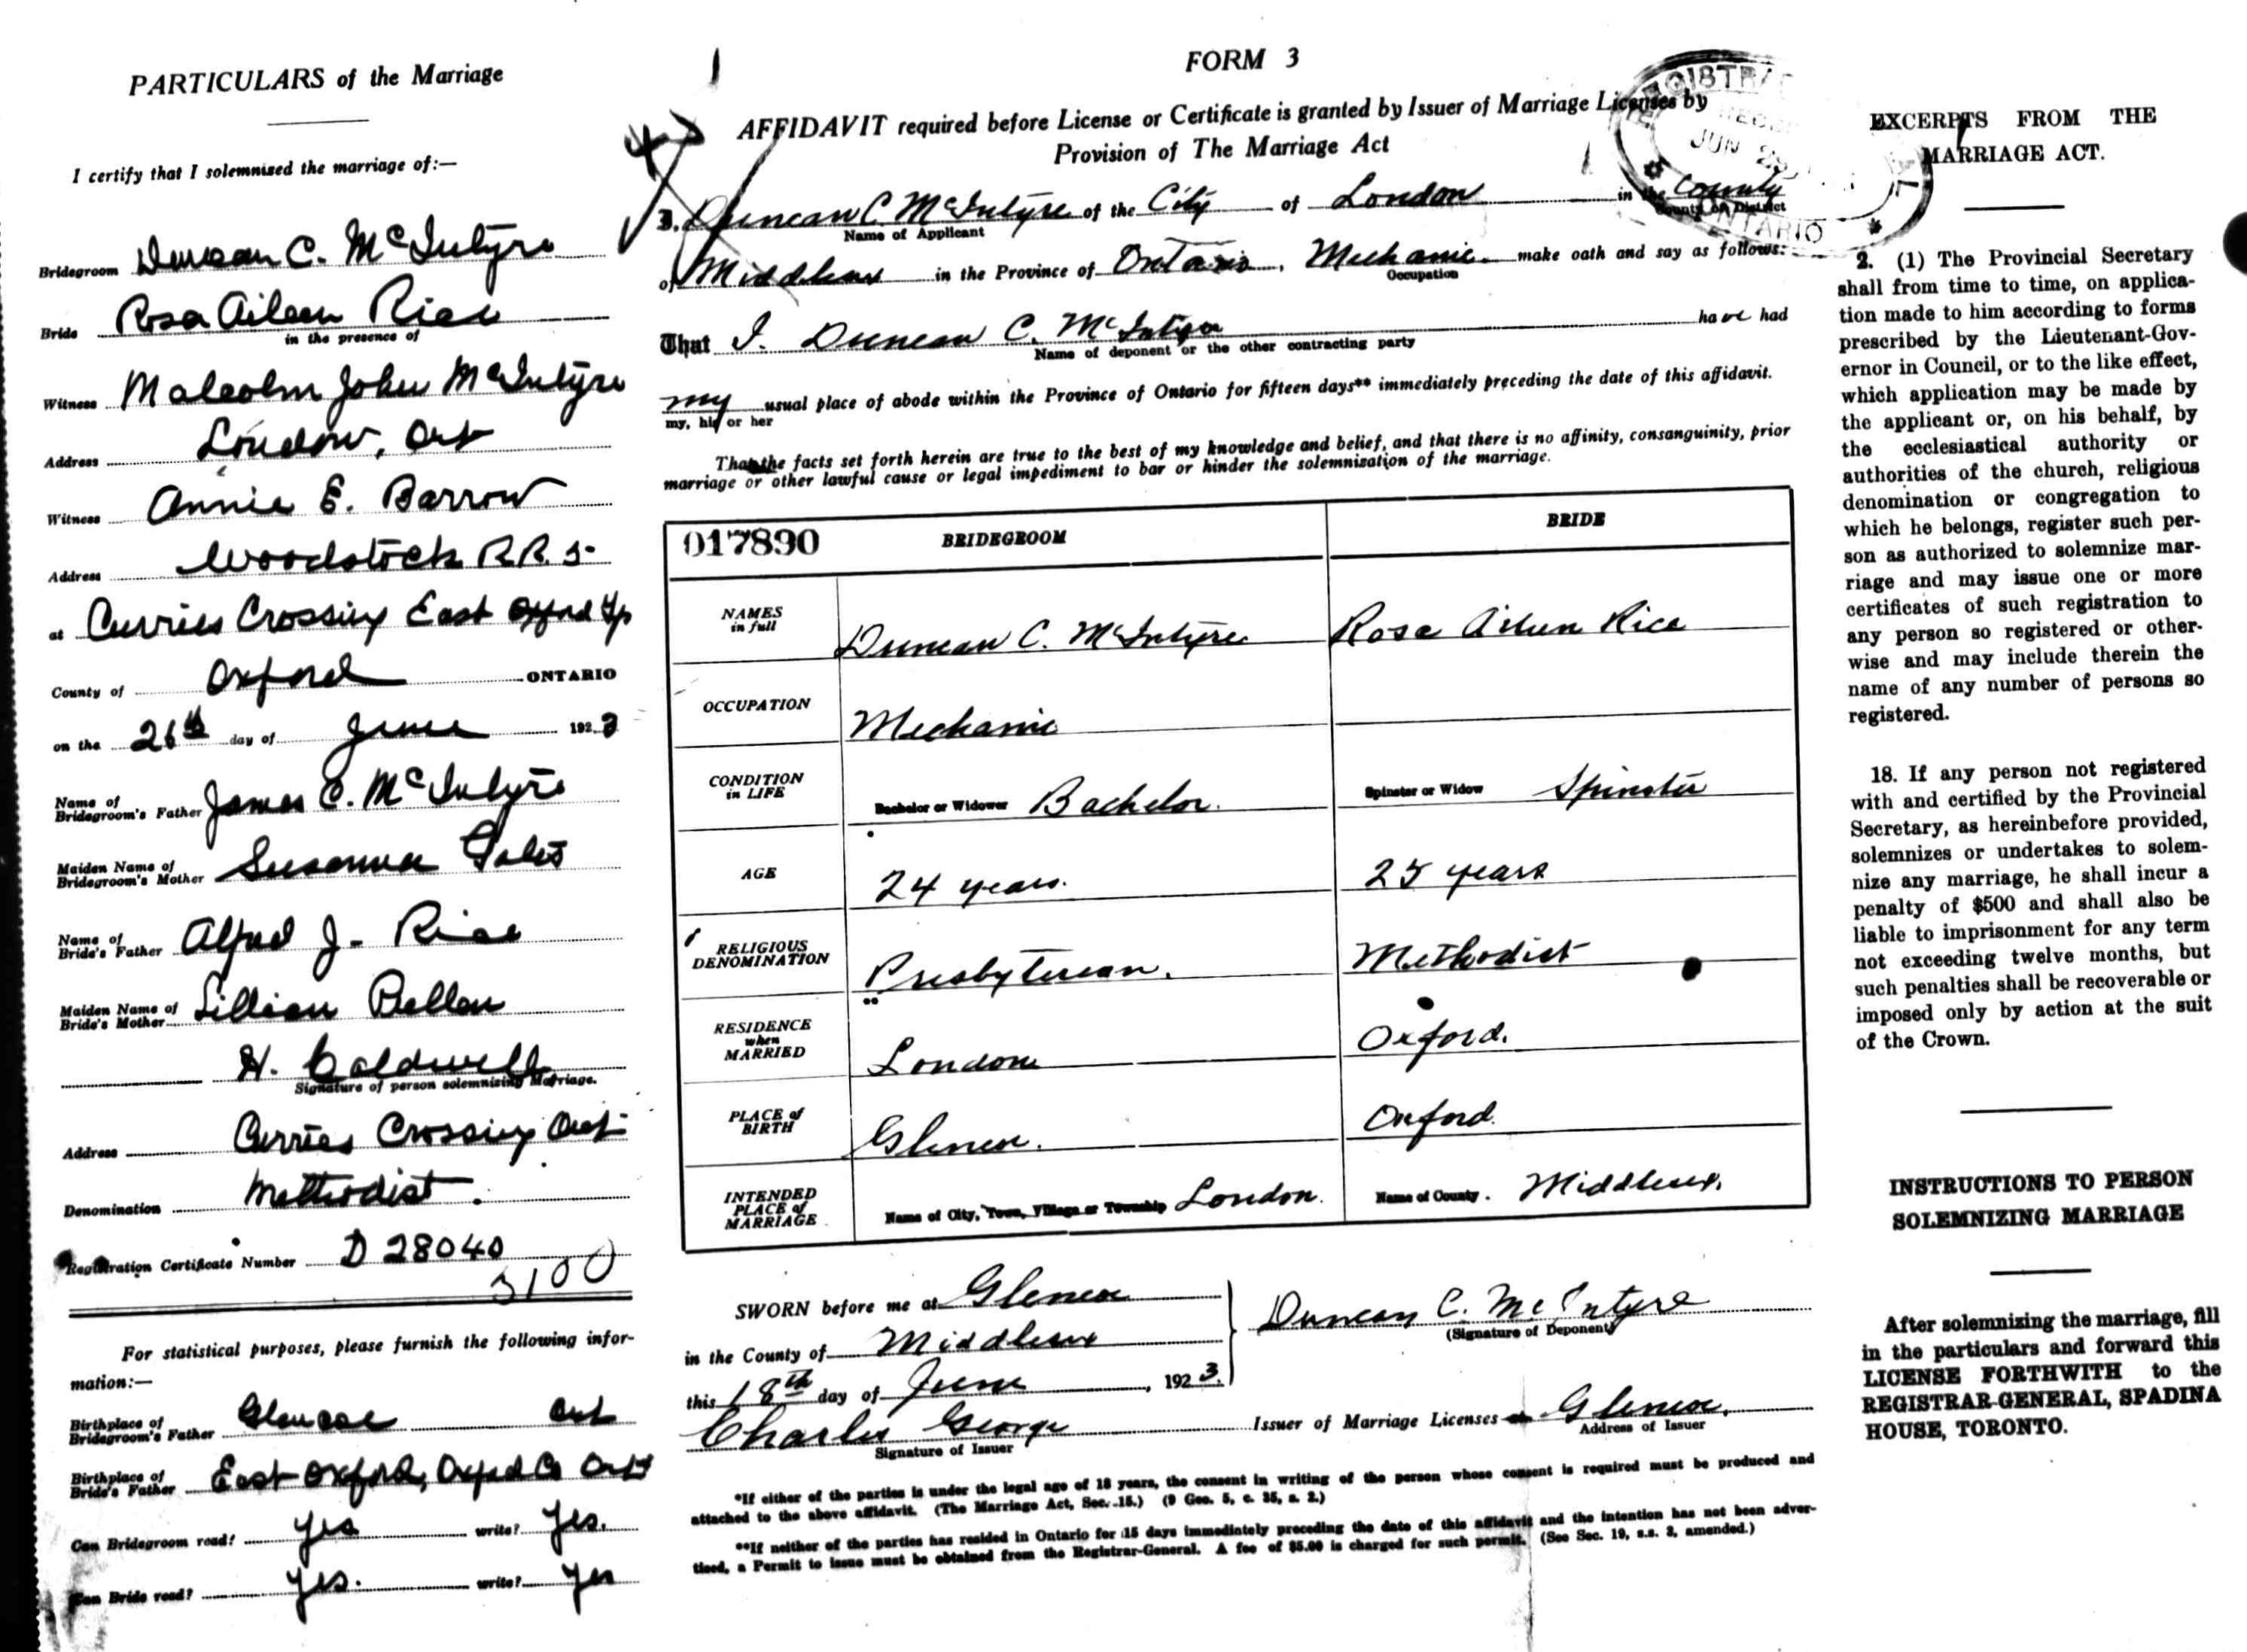 PARTICULARS of the Marriage
I certify that I solemnized the marriage of:—
Bridegroom Duncan C. McIntyre
Bride Rosa Aileen Rice
in the presence of
Witness Malcolm John McIntyre
Address London, Ont
Witness Annie E. Barrow
Address Woodstock R.R. 5
at Curries Crossing East Oxford Tp
County of Oxford ONTARIO
on the 26th day of June 1923
Name of
Bridegroom's Father James C. McIntyre
Maiden Name of
Bridegroom's Mother Susanna
Name of
Bride's Father Alfred J. Rice
Maiden Name of
Bride's Mother Lillian
H. Caldwell
Signature of person solemnizing Marriage.
Address Curries Crossing Ont
Denomination Methodist.
Registration Certificate Number D 28040
3100
For statistical purposes, please furnish the following infor-
mation:—
Birthplace of
Bridegroom's Father Glencoe Ont
Birthplace of
Bride's Father East Oxford, Oxford Co Ont
Can Bridegroom read? Yes write? Yes.
Can Bride read? Yes. write? Yes
FORM 3
AFFIDAVIT required before License or Certificate is granted by Issuer of Marriage Licenses by
Provision of The Marriage Act
I, Duncan C. McIntyre of the City of London in the County
Name of Applicant County or District
of Middlesex in the Province of Ontario, Mechanic make oath and say as follows:
Occupation
That I. Duncan C. McIntyre have had
Name of deponent or the other contracting party
my usual place of abode within the Province of Ontario for fifteen days** immediately preceding the date of this affidavit.
my, his or her
That the facts set forth herein are true to the best of my knowledge and belief, and that there is no affinity, consanguinity, prior
marriage or other lawful cause or legal impediment to bar or hinder the solemnization of the marriage.
017890 BRIDEGROOM BRIDE
NAMES
in full
Duncan C. McIntyre Rosa Aileen Rice
OCCUPATION
Mechanic
CONDITION
in LIFE
Bachelor or Widower Bachelor. Spinster or Widow Spinster
AGE
24 years. 25 years
RELIGIOUS
DENOMINATION
Presbyterian. Methodist
RESIDENCE
when
MARRIED
London Oxford.
PLACE of
BIRTH
Glencoe. Oxford.
INTENDED
PLACE of
MARRIAGE
Name of City, Town, Village or Township London. Name of County. Middlesex.
SWORN before me at Glencoe
in the County of Middlesex
this 18th day of June, 1923.
Duncan C. McIntyre
(Signature of Deponent)
Charles George Issuer of Marriage Licenses Glencoe.
Signature of Issuer Address of Issuer
*If either of the parties is under the legal age of 18 years, the consent in writing of the person whose consent is required must be produced and
attached to the above affidavit. (The Marriage Act, Sec. 15.) (9 Geo. 5, c. 35, s. 2.)
**If neither of the parties has resided in Ontario for 15 days immediately preceding the date of this affidavit and the intention has not been adver-
tised, a Permit to issue must be obtained from the Registrar-General. A fee of $5.00 is charged for such permit. (See Sec. 19, s.s. 3, amended.)
JUN
ONTARIO
EXCERPTS FROM THE
MARRIAGE ACT.
2. (1) The Provincial Secretary
shall from time to time, on applica-
tion made to him according to forms
prescribed by the Lieutenant-Gov-
ernor in Council, or to the like effect,
which application may be made by
the applicant or, on his behalf, by
the ecclesiastical authority or
authorities of the church, religious
denomination or congregation to
which he belongs, register such per-
son as authorized to solemnize mar-
riage and may issue one or more
certificates of such registration to
any person so registered or other-
wise and may include therein the
name of any number of persons so
registered.
18. If any person not registered
with and certified by the Provincial
Secretary, as hereinbefore provided,
solemnizes or undertakes to solem-
nize any marriage, he shall incur a
penalty of $500 and shall also be
liable to imprisonment for any term
not exceeding twelve months, but
such penalties shall be recoverable or
imposed only by action at the suit
of the Crown.
INSTRUCTIONS TO PERSON
SOLEMNIZING MARRIAGE
After solemnizing the marriage, fill
in the particulars and forward this
LICENSE FORTHWITH to the
REGISTRAR-GENERAL, SPADINA
HOUSE, TORONTO.